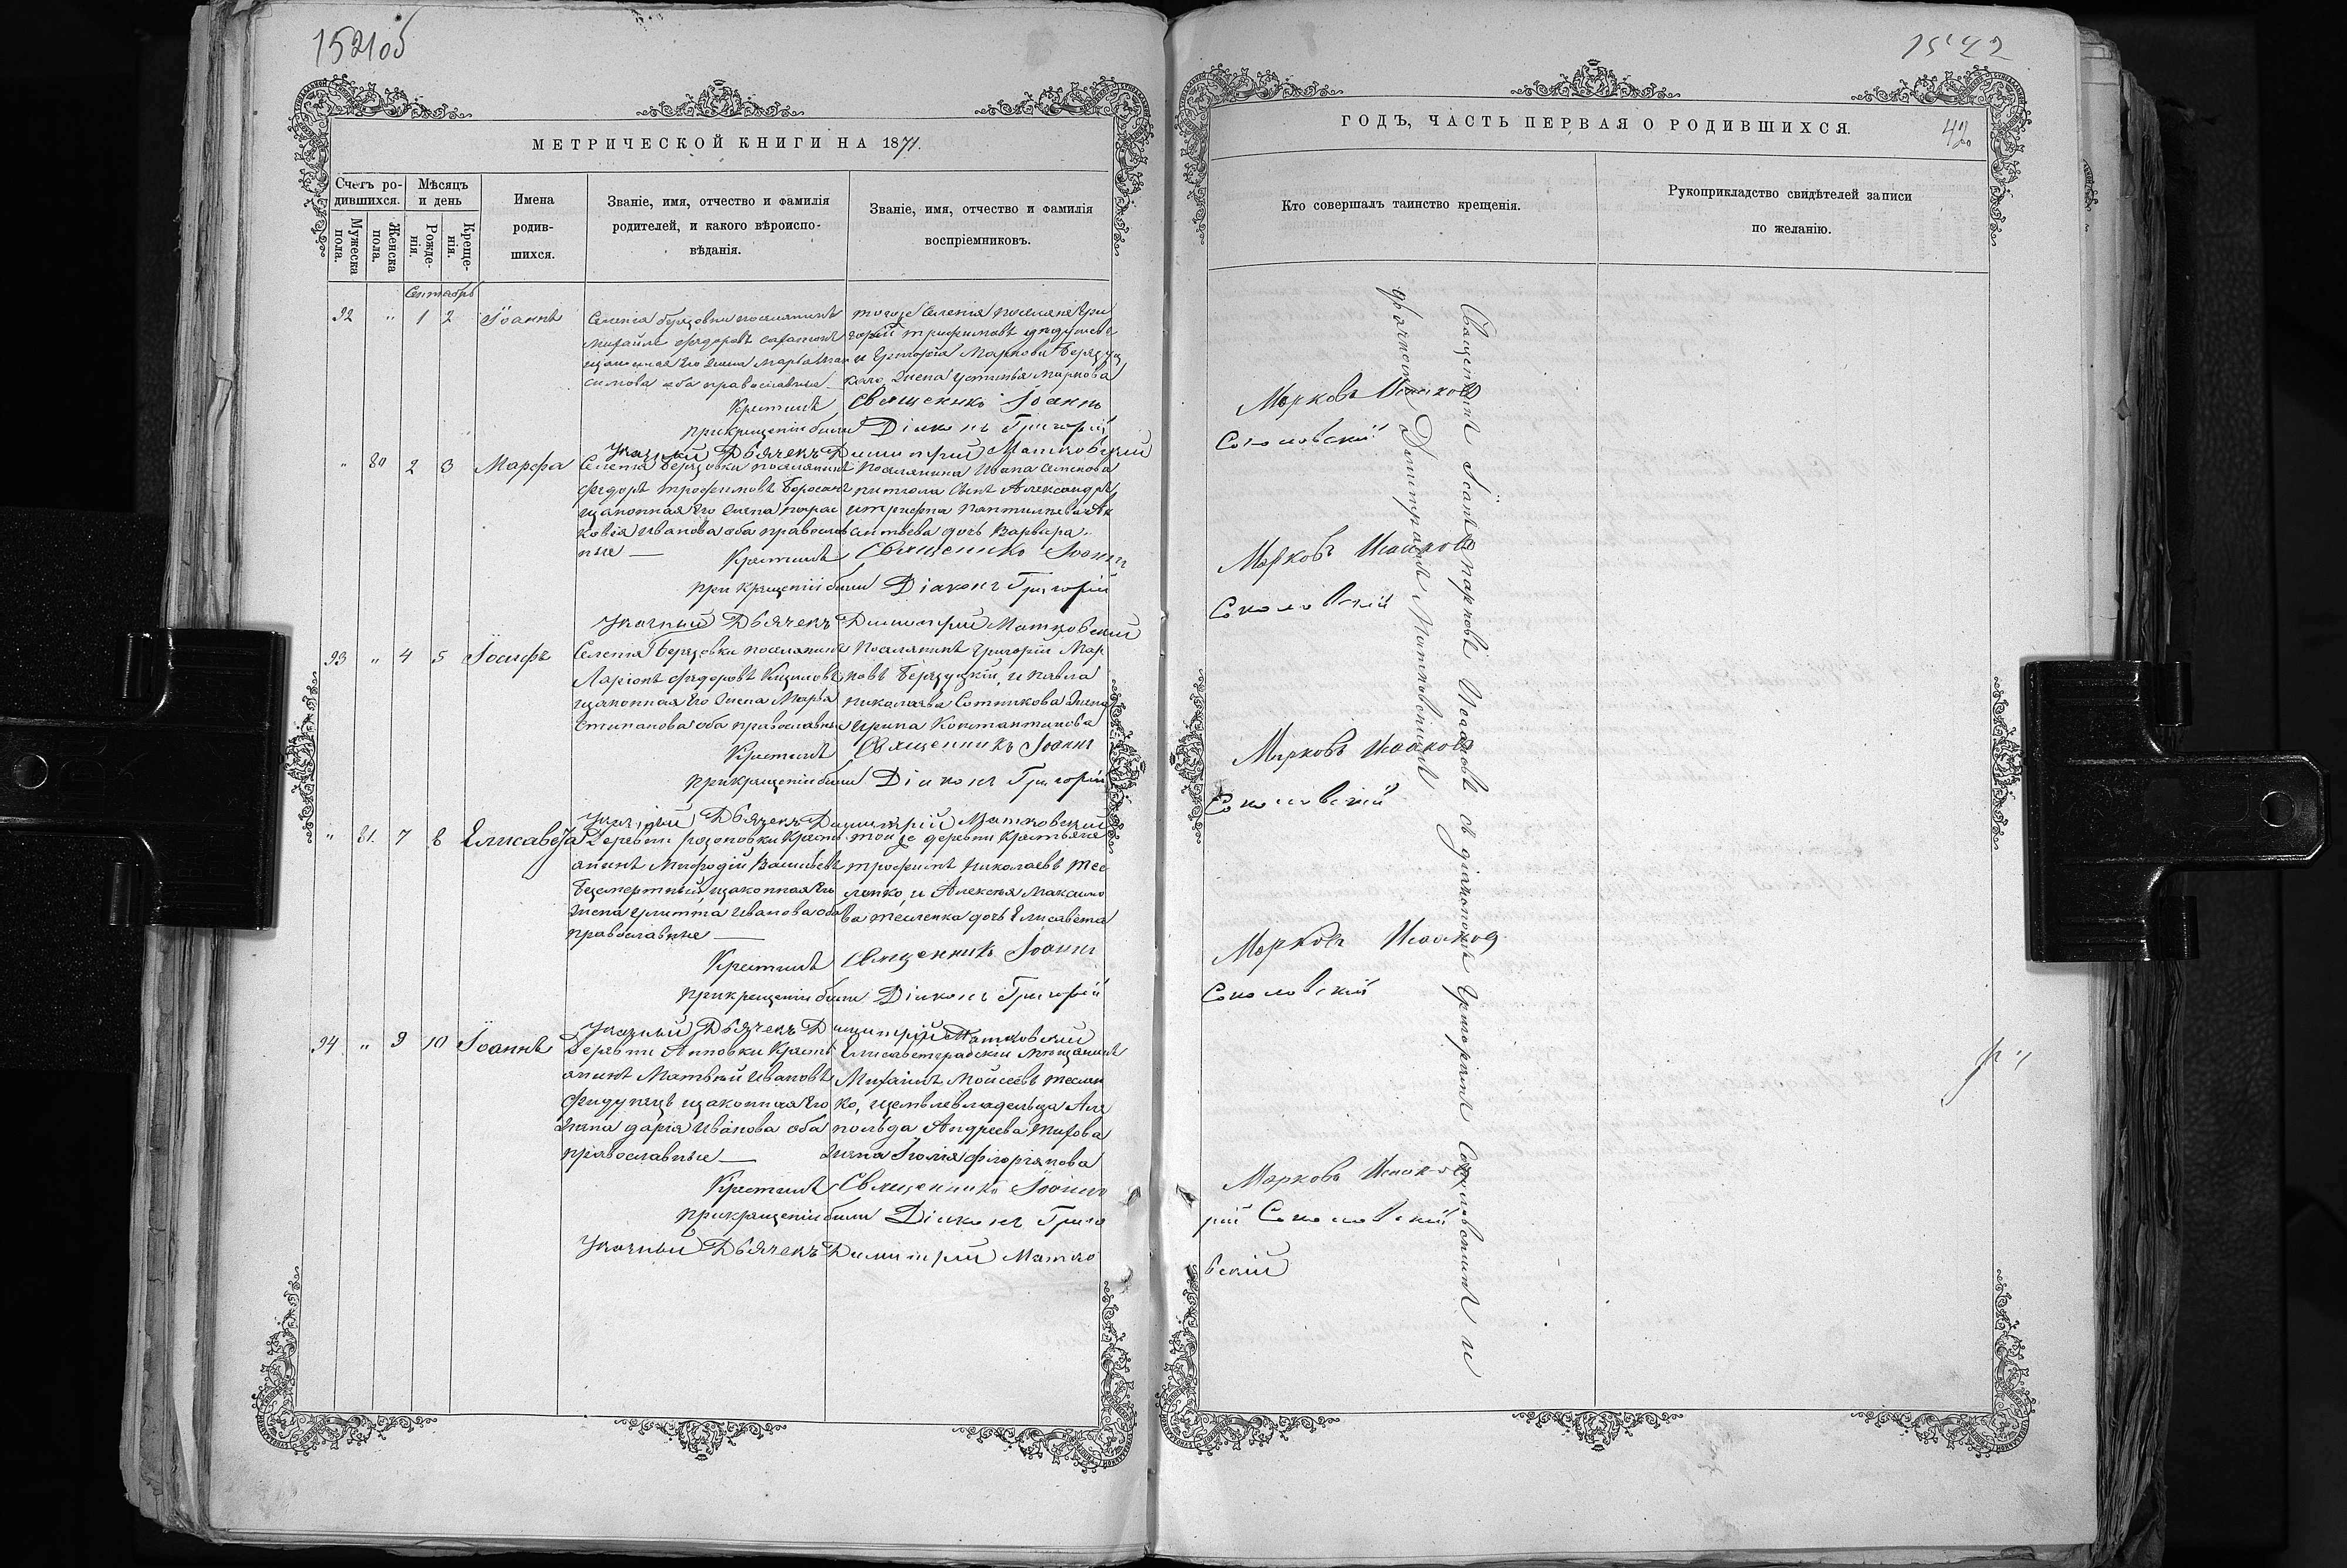 152об
МЕТРИЧЕСКОЙ КНИГИ НА 1871.
Счетъ ро-
дившихся.
Мужеска
пола.
Женска
пола.
Мѣсяцъ
и день
Рожде-
нія.
Креще-
нія.
Имена
родив-
шихся.
Званіе, имя, отчество и фамилія
родителей, и какого вѣроиспо-
вѣданія.
Званіе, имя, отчество и фамилія
воспріемниковъ.
Сентябрь
92 " 1 2 Іоаннъ
Селенія Берзовки поселянинъ
Михаилъ Федоровъ
законная его жена Марѳа
симова оба православные
тогоже Селенія поселяне Гри
горій Трифиновъ
и Григорія Маркова Берзуц
каго жена Устинья Маркова
Крестилъ Священникъ Іоаннъ
при крещеніи были Діаконъ Григорій
Указный Дьячекъ Димитрій Матковскій
" 80 2 3 Марфа
Селенія Берзовки поселянинъ
Федоръ Трофимовъ
законная его жена парас
ковія Иванова оба православ
ные
Поселянина Ивана Семенова
сынъ Александръ,
дочь Варвара.
Крестилъ Священникъ Іоаннъ
при крещеніи были Діаконъ Григорій
Указный Дьячекъ Димитрій Матковскій
93 " 4 5 Іосифъ
Селенія Берзовки поселянинъ
Ларіонъ Федоровъ Кизиловъ
законная его жена Марѳа
Степанова оба православные
Поселянинъ Григорій Мар
ковъ Берзуцкій, и Павла
Николаева Сотникова жена
Ирина Константинова
Крестилъ Священникъ Іоаннъ
при крещеніи были Діаконъ Григорій
Указный Дьячекъ Димитрій Матковскій
" 81. 7 8 Елисавета
Деревни Розоновки Кресть
анинъ Мефодій Васильевъ
Безмертный, законная его
жена Улитта Иванова оба
православные
тойже деревни Крестьяне
Трофимъ Николаевъ Тес
ленко, и Алексѣя Максимо
ва Тесленка дочь Елисавета
Крестилъ Священникъ Іоаннъ
при крещеніи были Діаконъ Григорій
Указный Дьячекъ Димитрій Матковскій
94 " 9 10 Іоаннъ
Деревни Анновки Кресть
анинъ Матвѣй Ивановъ
законная его
жена Дарія Иванова оба
православные
Елисаветградскій мѣщанинъ
Михаилъ Моисеевъ Теслен
ко, и землевладельца Лео
польда Андреева Титова
жена Юлія Флоріянова
Крестилъ Священникъ Іоаннъ
при крещеніи были Діаконъ Григо
Указный Дьячекъ Димитрій Матко
42
ГОДЪ, ЧАСТЬ ПЕРВАЯ О РОДИВШИХСЯ.
Кто совершалъ таинство крещенія.
Рукоприкладство свидѣтелей записи
по желанію.
Священникъ Іоаннъ Марковъ Исааковъ съ діакономъ Григоріемъ Соколовскимъ и
дьячкомъ Димитріемъ Матковскимъ
Марковъ Исаковъ
Соколовскій
Марковъ Исааковъ
Соколовскій
Марковъ Исааковъ
Соколовскій
Марковъ Исааковъ
Соколовскій
Марковъ Исааковъ
рій Соколовскій
вскій